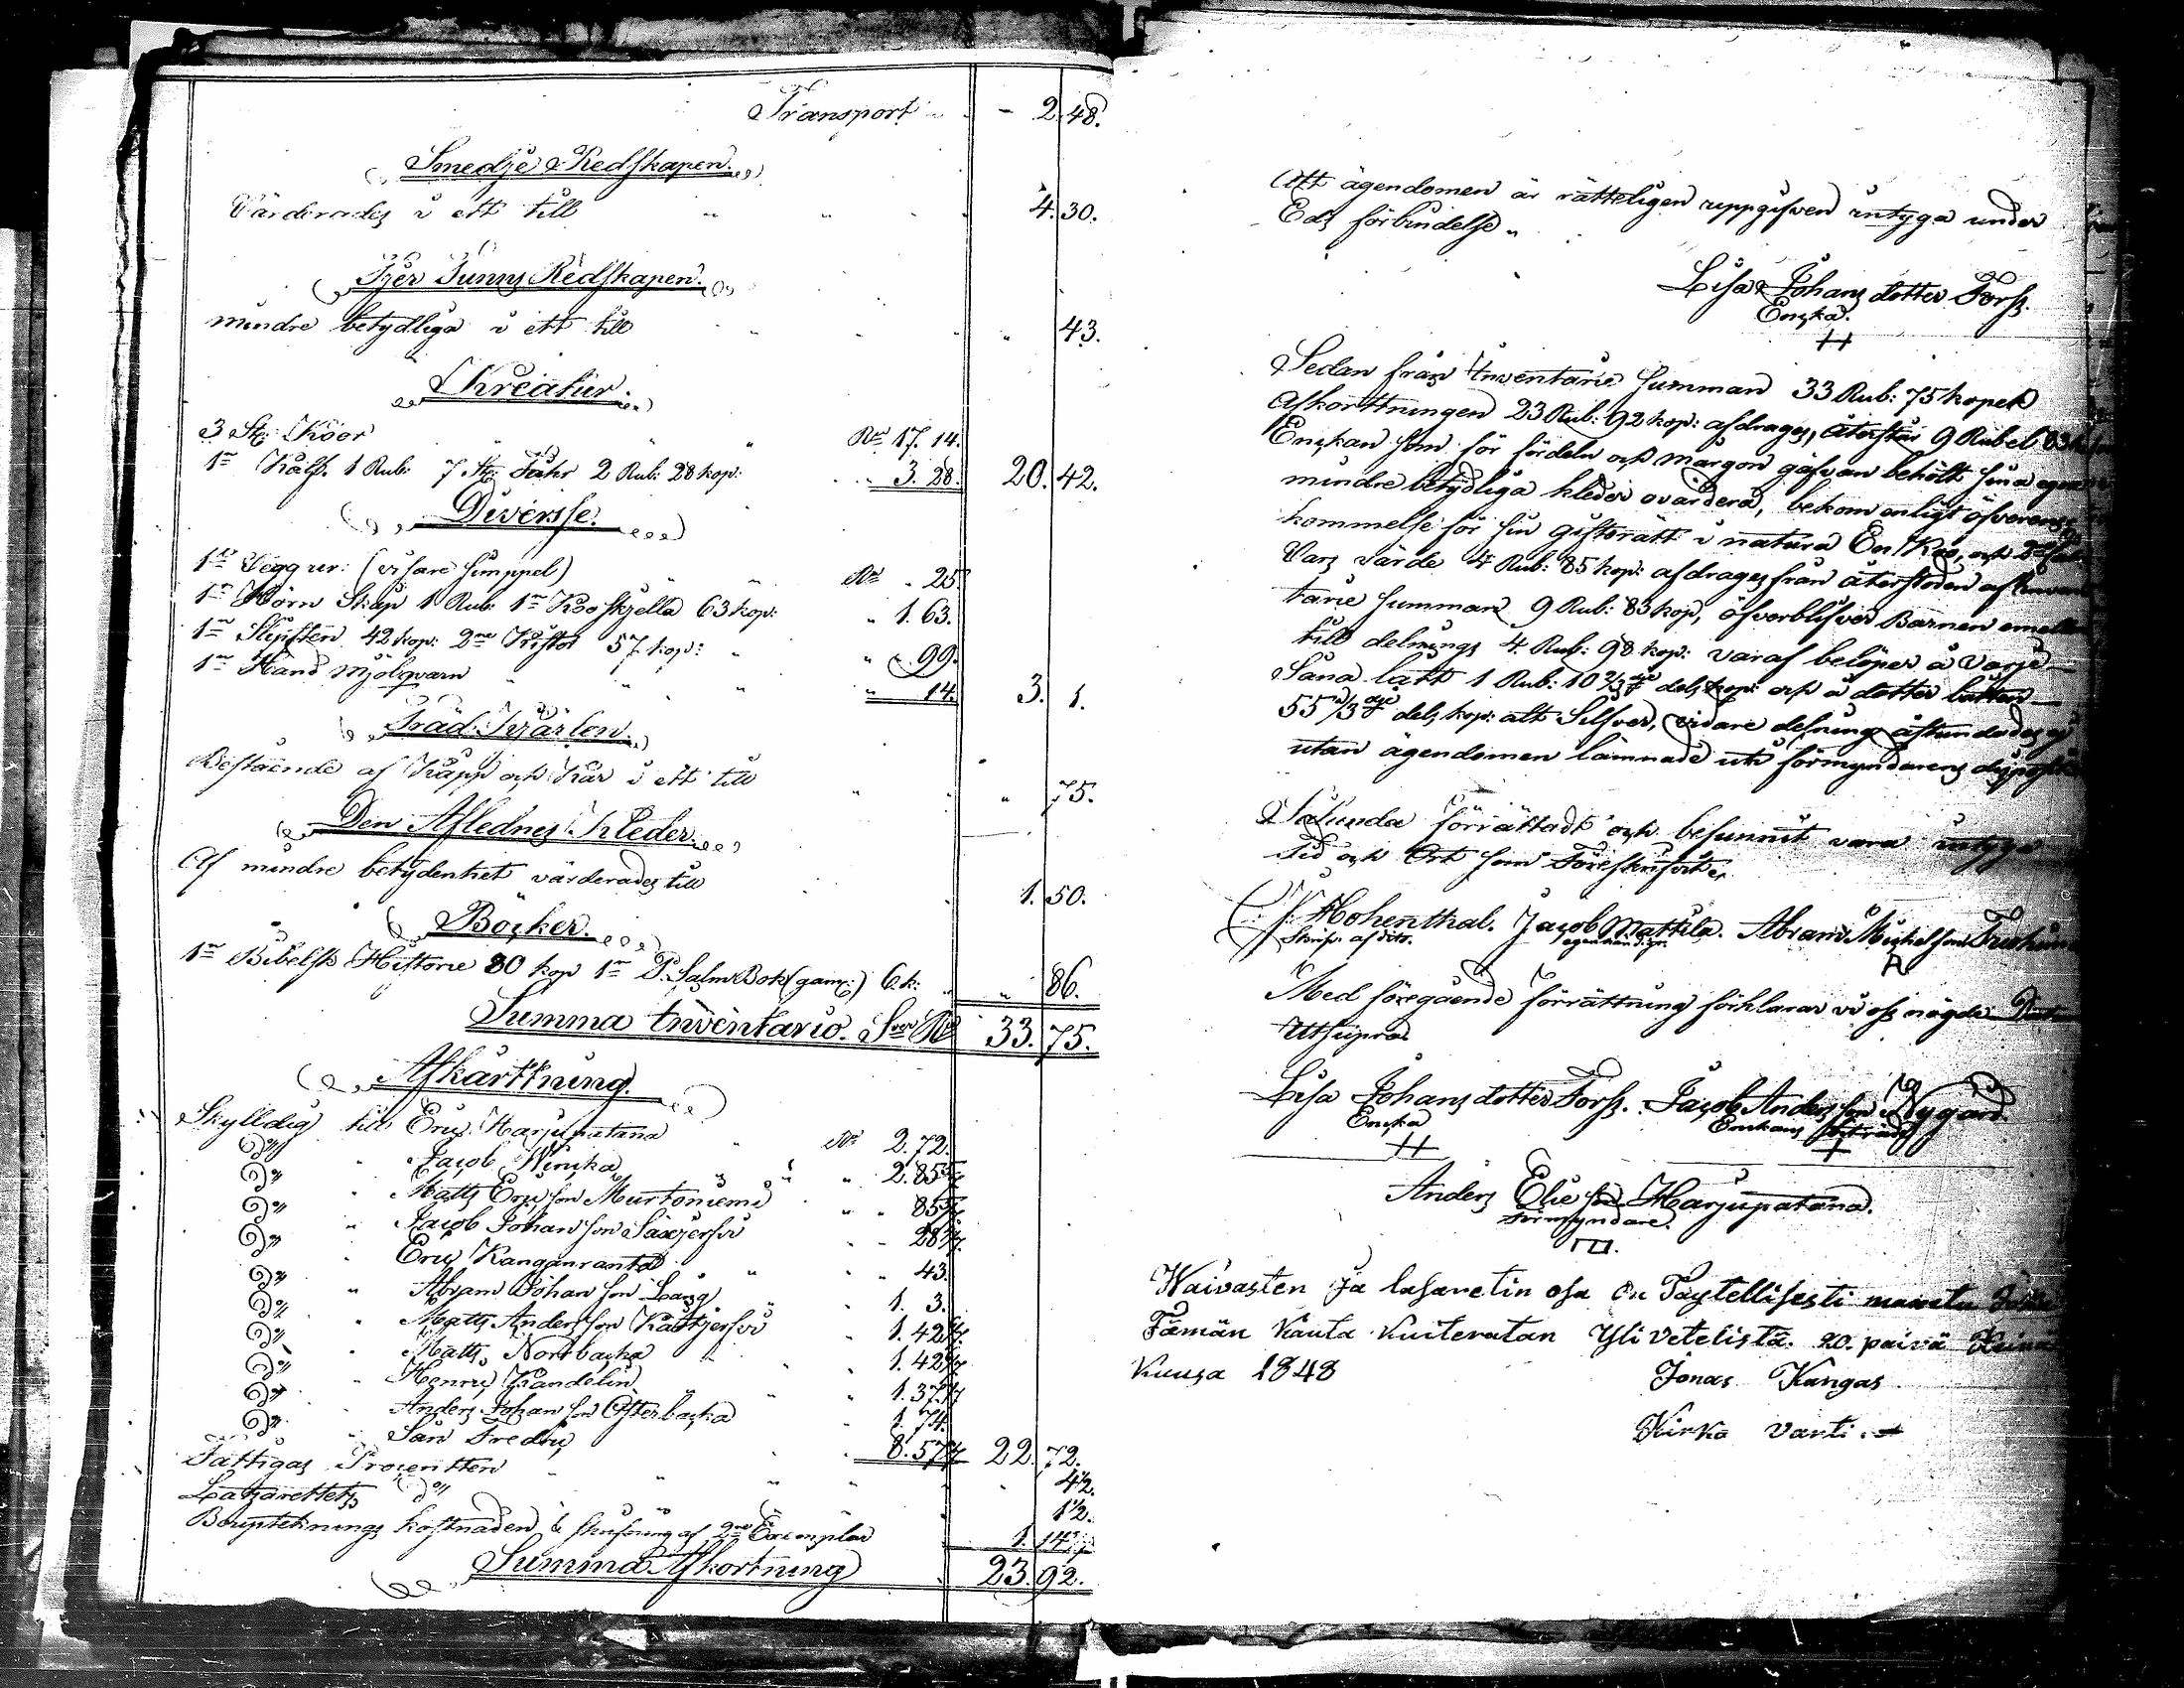 Transport - 2. 48.
Smedje Redskapen.
Värderades i ett till 4. 30.
Tjer Tunns Redskapen.
mindre betydliga i ett till " 43.
Kreatur.
3 St: Köor Rr 17. 14.
1 Kalf. 1 Rub: 7 St: Fåhr 2 Rub: 28 kop: 3. 28. 20. 42.
Diversse.
1 Vegg ur: (visare simppel) Rr " 25.
1 Hörn Skåp 1 Rub: 1 Kooskjella 63 kop: " 1. 63.
1 Slipsten 42 kop: 2 Kistor 57 kop: " " 99.
1 Hand Mjölqvarn " 14. 3. 1.
Träd Kjärlen.
Bestående af Käpp och Kar i ett till " 75.
Den Aflednes Kleder.
Af mindre betydenhet värderades till 1. 50.
Böcker.
1 Bibelsk Historie 80 kop 1 P.Salm Bok (gam:) 6 k: " 86.
Summa Inventario. Sver Rr 33. 75.
Afkårttning.
Skylldig till Eric Harjupatana Rr 2. 72.
D:o " Jacob Wirvka " 2. 85
D:o " Matts Ericson Murtoniemi " " 85
D:o " Jacob Johansson Saarjersvi " " 28
D:o " Eric Kanganranta " " 43.
D:o " Abram Johansson Lång " 1. 3.
D:o " Matts Andersson Kattjersvi " 1. 42
D:o " Matts Norrbacka " 1. 42
D:o " Henric Kandelin " 1. 37
D:o " Anders Johansson Österbacka 1. 74.
D:o " San Fredric 8. 57 22. 72.
Fattigas Procentten " 4½.
Latzarettets D:o 1½.
Boupteknings kostnaden & skrifning af 2 Exemplar 1. 14
Summa Afkortning 23. 92.
Att ägendomen är rätteligen uppgifven intyga under
Eds förbindelse "
Lisa Johans dotter Forss.
Enska.
Sedan från Inventarie summan 33 Rub: 75 kopek
Afkorttningen 23 Rub: 92 kop: afdrages, återstår 9 Rubel 83
Enskan som för fördeln och morgon gåfvan behölt sina egna
mindre betydliga kleder ovärderd, bekom enligt öfverens
kommelse för sin giftorätt i natura En Koo, och 2
Vars värde 4 Rub: 85 kop: afdrages från återstoden af Inven
tarie summan 9 Rub: 83 kop, öfverblifver Barnen emellan
till delnings 4 Rub: 98 kop: varaf belöper å varje
Sona latt 1 Rub: 10 2/3 dels kop: och å dotter latten
55 1/3 dels kop: alt Silfver, vidare delning åstundades ej
utan ägendomen lämnade uti förmyndarens disposition
Sålunda förrättadt och befunnit vara intyga
tid och Ort som Föreskrifvit är
J. Hohenthal. Jacob Mattila. Abram Mickelson
Skrif. af dito. egenhändigt.
Med föregående förrättning förklarar vi oss nögde
Utsupra
Lisa Johans dotter Forss. Jacob Anders son Nygård.
Enska Enskans biträde
Anders Elie son Harjupatana.
Förmyndare.
Waivasten Ja lasaretin osa On Taytellisesti maxettu
Tämän Kauta Kuiteratan Ylivetelistä. 20. paivä Heinä
Kuusa 1848
Jonas Kangas
Kirko Varti.